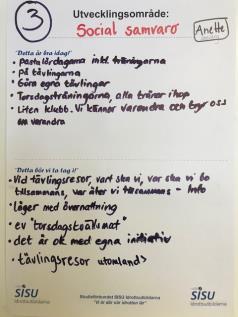 3
Utvecklingsområde:
Social samvaro
Anette
"Detta är bra idag!"
• Pastalördagarna inkl. träningarna
• På tävlingarna
• Göra egna tävlingar
• Torsdagsträningarna, alla tränar ihop
• Liten klubb. Vi känner varandra och bryr oss
om varandra
"Detta bör vi ta tag i!"
• Vid tävlingsresor, vart ska vi, var ska vi bo
tillsammans, var äter vi tillsammans - Info
• Läger med övernattning
• ev "torsdagstvåkamp"
• det är ok med egna initiativ
• tävlingsresor utomlands
SISU
Idrottsutbildarna
Studieförbundet SISU Idrottsutbildarna
SISU
Idrottsutbildarna